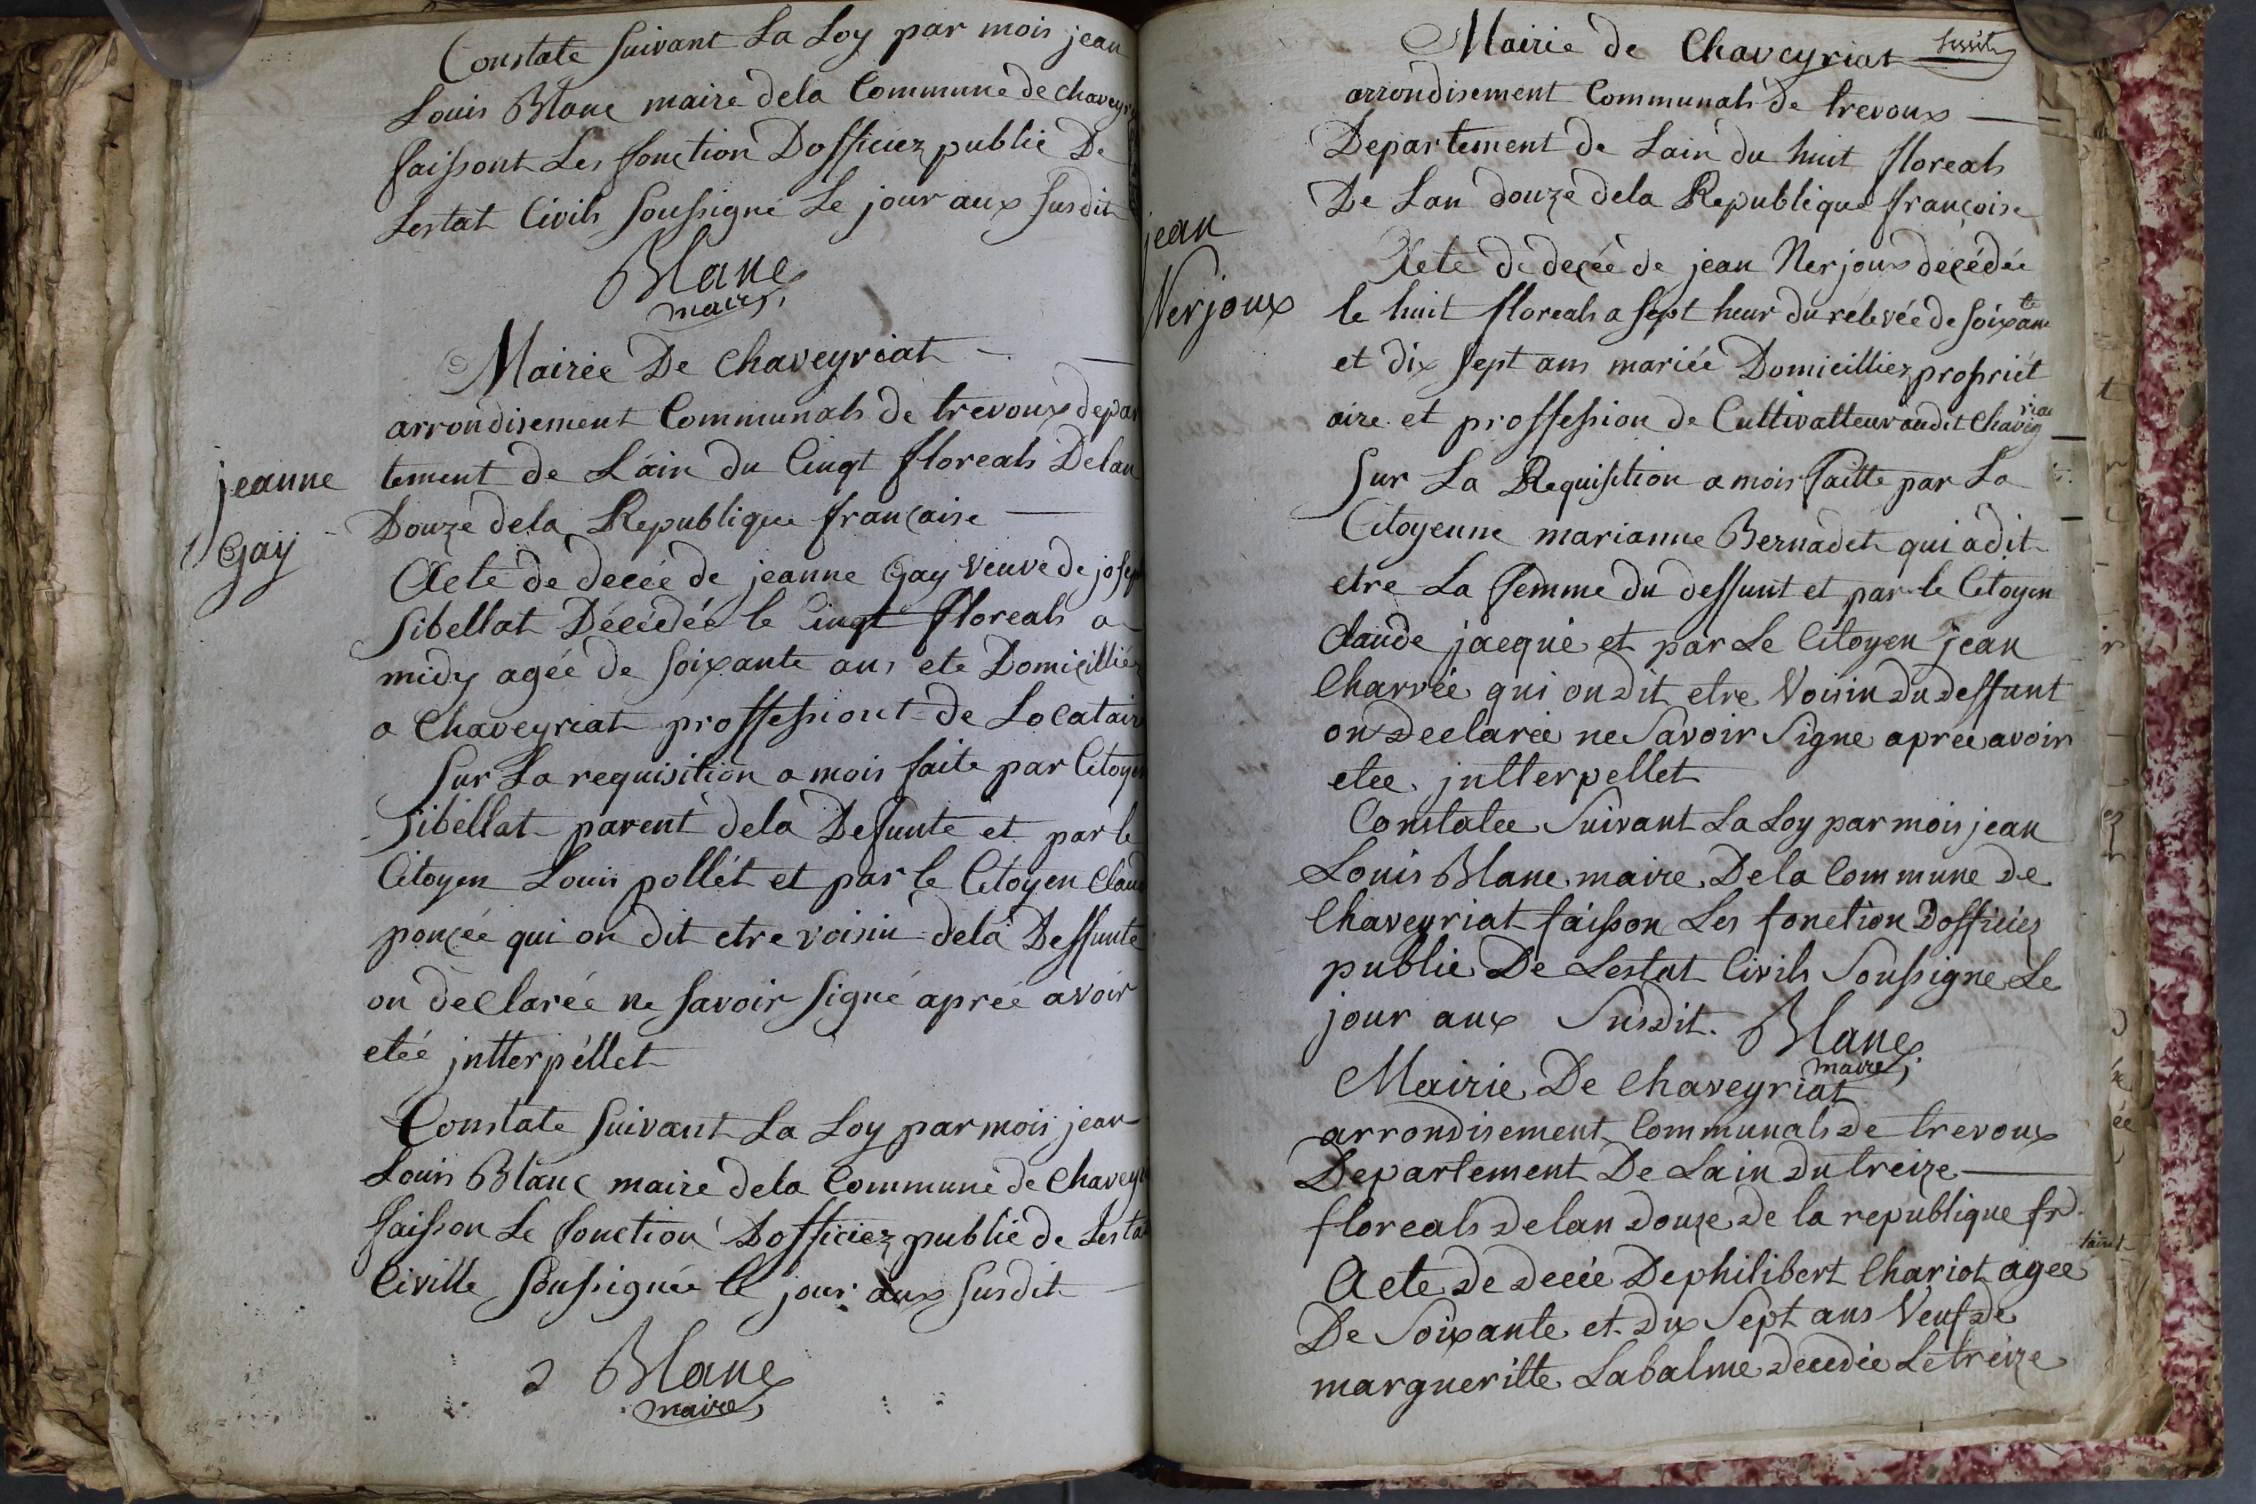 Constate Suivant La Loy par mois jean
Louis Blanc maire dela Commune de chavey
faissont Les fonction Dofficiez public De
Lestat Civils Soussigné Le jour aux susdit
Blanc
maire
Mairie De Chaveyriat
arrondisement Communals de trevoux depar
jeanne
Gay
tement de L'ain du Cinqt floreals Delan
Douze dela Republique francaise
Acte de decée de jeanne Gay veuve de josep
Sibellat Décédée le Cinqt floreals a
midy agée de soixante ans ete Domicilliez
a Chaveyriat proffessiont de Locataire
Sur La requisition a mois faite par Citoyen
Sibellat parent dela Defunte et par le
Citoyen Louis pollét et par le Citoyen Claud
poncée qui on dit etre voisin dela Deffunte
on declarée ne savoir signé aprée avoir
etée jntterpéllet
Constate suivant La Loy par mois jean
Louis Blanc maire dela Commune de Chavey
faisson Le fonction Dofficiez public de Lestat
Civille Soussignée le jour aux susdit
Blanc
maire
Mairie de Chaveyriat
arrondisement Communals de trevoux
Departement de Lain du huit floreals
De Lan douze dela Republique francoise
jean
Nerjoux
Acte de decée de jean Nerjoux décédée
le huit floreals a sept heur du relevée de soixante
et dix sept ans mariée Domicilliez propriét
aire et proffession de Cultivatteur audit Chaveyriat
Sur La Requisition a mois faitte par La
Citoyenne marianne Bernadet qui a dit
etre La femme du deffunt et par le Citoyen
Claude jacquè et par Le Citoyen jean
Charvée qui on dit etre Voisin du deffunt
on Declarée ne Savoir Signe aprée avoir
etee jntterpellet
Constatee Suivant La Loy par mois jean
Louis Blanc maire De la Commune de
Chaveyriat faisson Les fonction Dofficiez
public De Lestat Civils Soussigne Le
jour aux Susdit.
Blanc
maire
Mairie De Chaveyriat
arrondisement Communals de trevoux
Departement De Lain du treize
floreals de lan douze de la republique fr
Acte de decée De philibert Chariot agee
De Soixante et dix Sept ans Veuf de
margueritte Labalme decedée Le treize